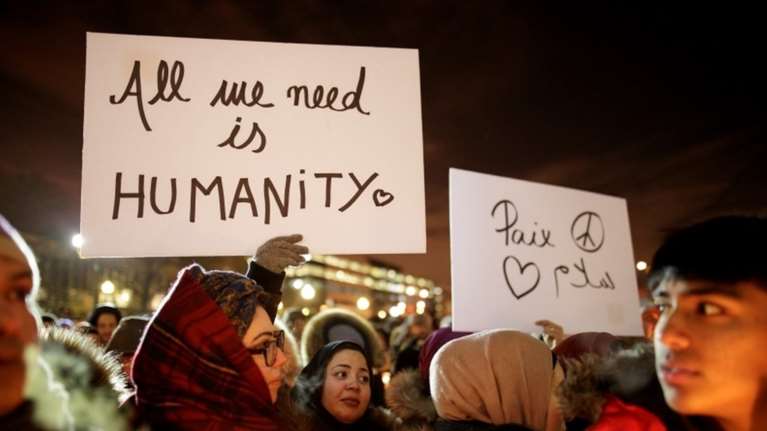 All we need
is
HUMANiTY
Paix
سلام